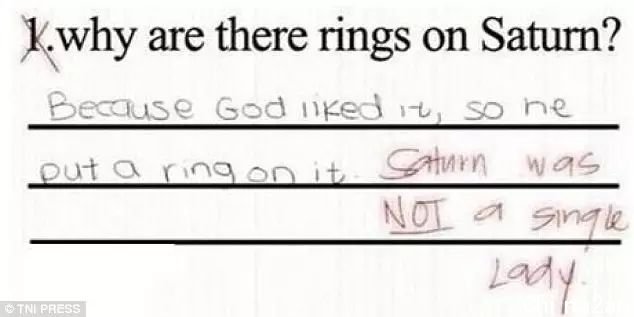 1.why are there rings on Saturn?
Because God liked it, so he
put a ring on it. Saturn was
NOT a single
Lady.
© TNI PRESS